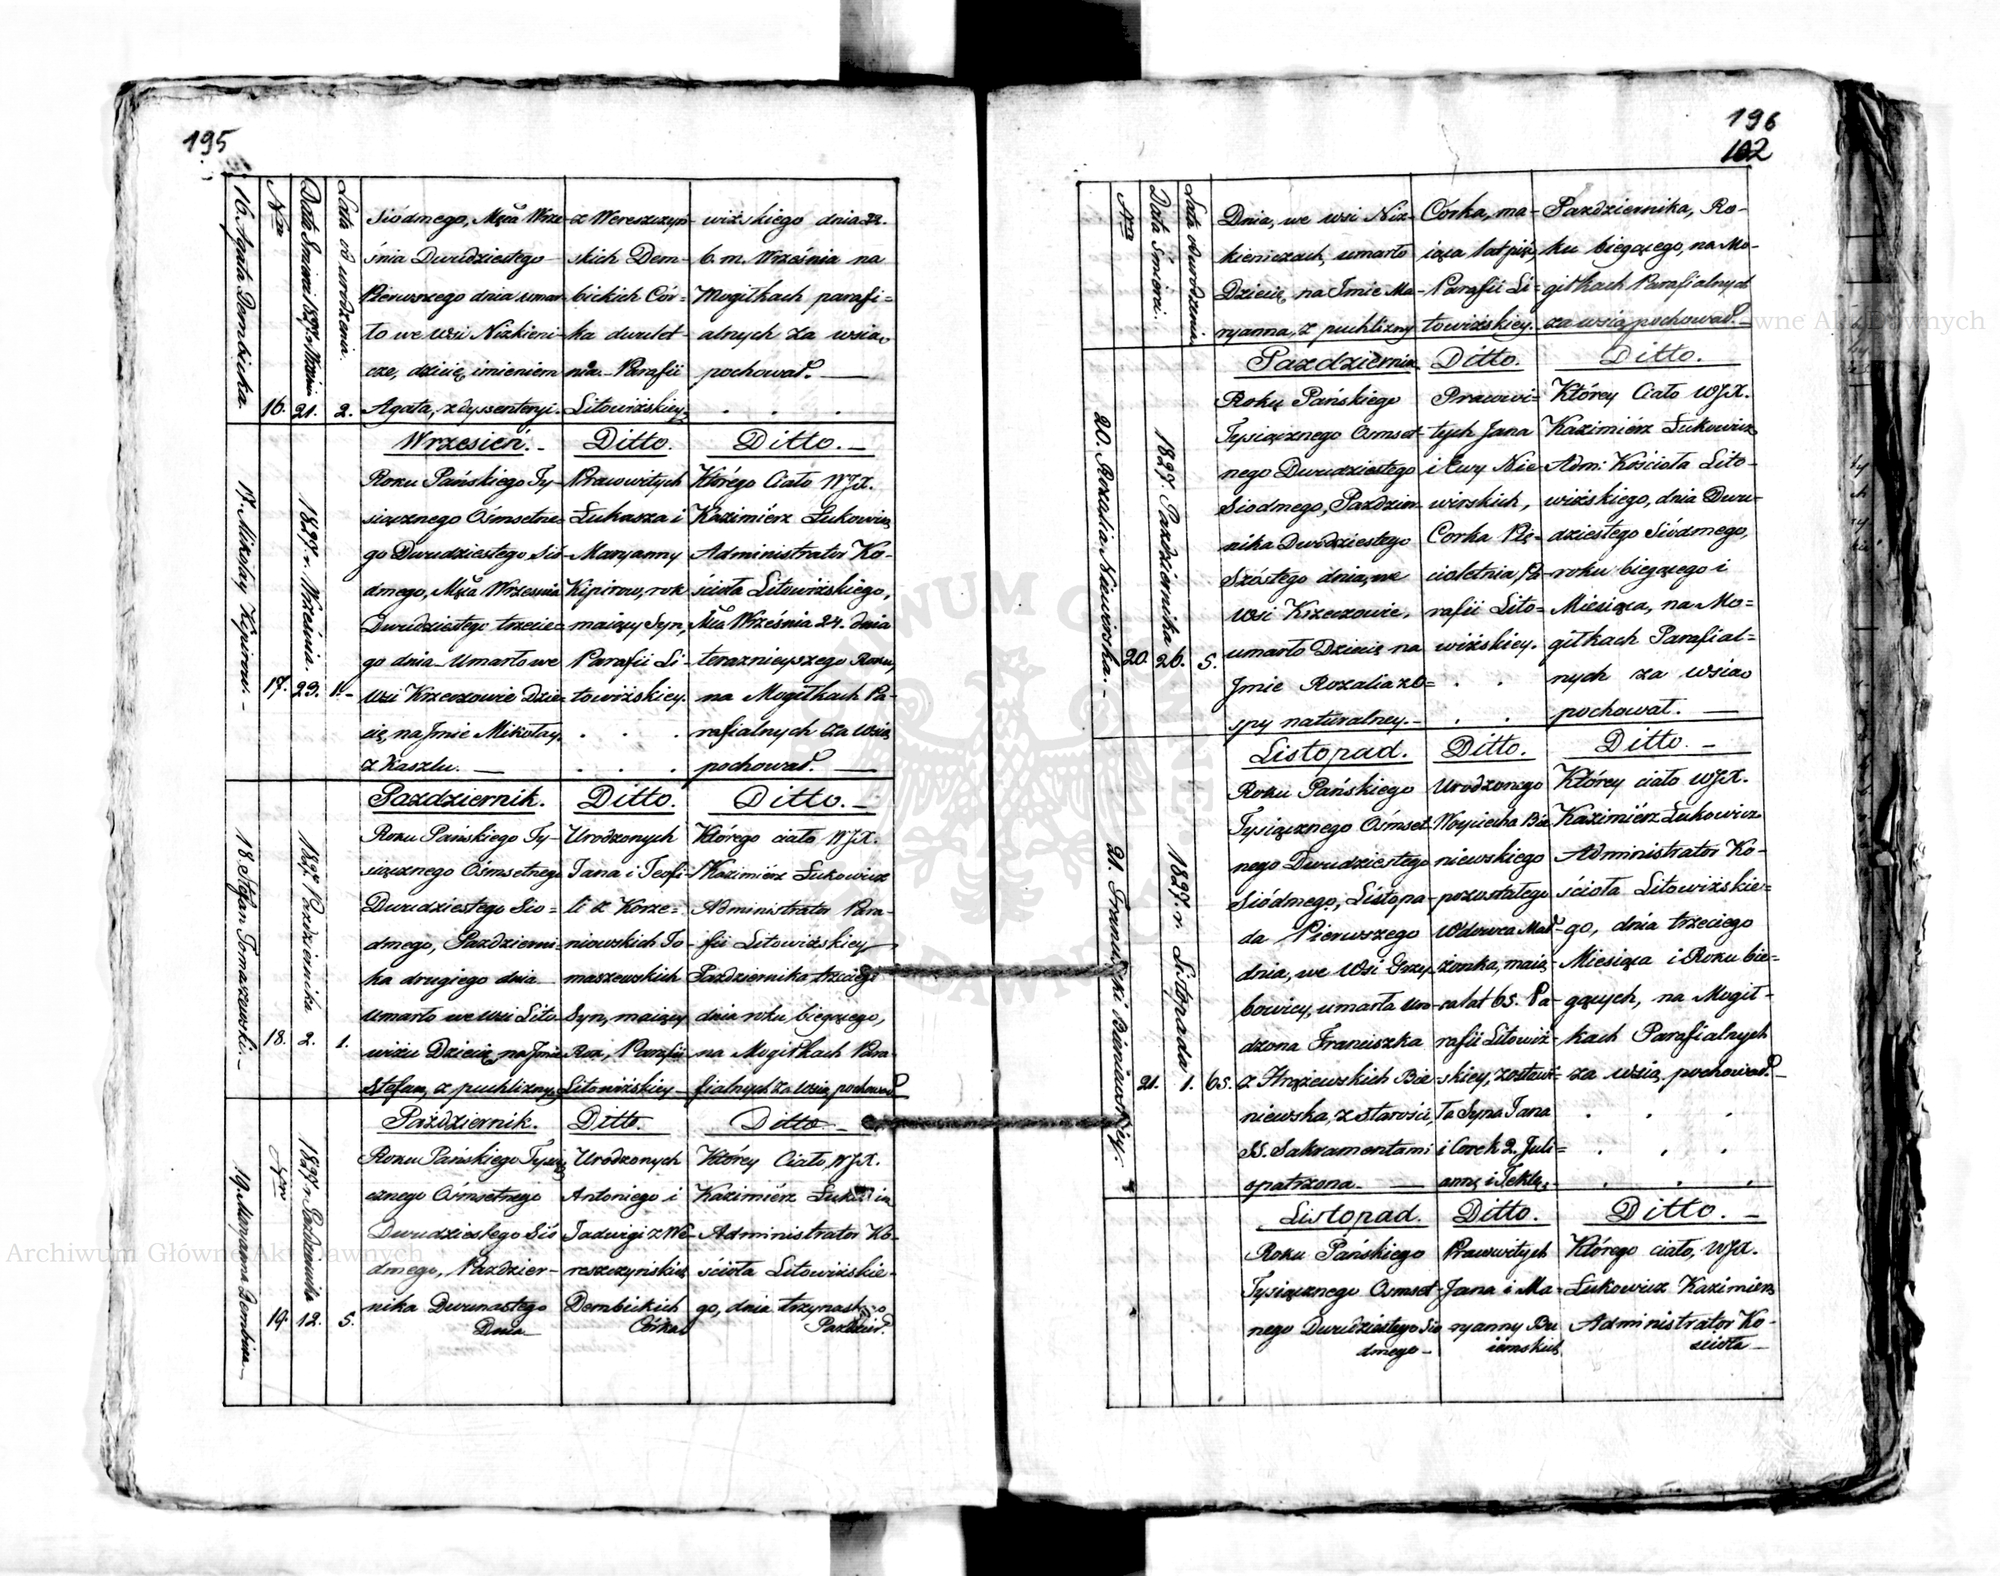 195
16. Agata Dembicka.
Nro
Data Śmierci 1827 r. Września
Lata od urodzenia.
16.
21.
2.
Siódmego, Mca Wrze-
śnia Dwudziestego
Pierwszego dnia umar-
ło we Wsi Nizkieni-
cze, dziecię, imieniem
Agata, z dyssenteryi.
z Wereszczyń-
skich Dem-
bickich Cór-
ka dwulet-
nia. Parafii
Litowiżskiey.
wiżskiego dnia 22.
b. m. Września na
Mogiłkach parafi-
alnych za wsią
pochował.
17. Mikołay Kipirow.
1827. r. Września.
17.
23.
1.
Wrzesień.
Roku Pańskiego Ty-
siącznego Ośmsetne-
go Dwudziestego Sió-
dmego, Mca Września
Dwudziestego trzecie-
go dnia Umarło we
Wsi Krzeczowie Dzie-
cię, na Jmie Mikołay,
z Kaszlu.
Ditto.
Prawowitych
Łukasza i
Maryanny
Kipirow, rok
maiący Syn,
Parafii Li-
towiżskiey.
Ditto.
Którego Ciało WJX.
Kazimiérz Łukowicz
Administrator Ko-
ścioła Litowiżskiego,
Mca Września 24. dnia
teraznieyszego Roku,
na Mogiłkach Pa-
rafialnych za Wsią
pochował.
18. Stefan Tomaszewski.
1827 Pazdziernika
18.
2.
1.
Pazdziernik.
Roku Pańskiego Ty-
siącznego Ośmsetnego
Dwudziestego Sió-
dmego, Pazdzierni-
ka drugiego dnia
Umarło we Wsi Lito-
wiżu Dziecię, na Jmie
Stefan, z puchlizny
Ditto.
Urodzonych
Jana i Teofi-
li z Korze-
niowskich To-
maszewskich
Syn, maiący
Rok, Parafii
Litowiżskiey
Ditto.
Którego ciało WJX.
Kazimiérz Łukowicz
Administrator Para-
fii Litowiżskiey
Pazdziernika trzeciego
dnia roku bieżącego,
na Mogiłkach Para-
fialnych za Wsią pochował
19. Maryanna Dembicka
Nro
1827 r. Pazdziernika
19.
12.
5.
Październik.
Roku Pańskiego Tysią-
cznego Ośmsetnego
Dwudziestego Sió-
dmego, Pazdzier-
nika Dwunastego
Dnia
Ditto.
Urodzonych
Antoniego i
Jadwigi z We-
reszczyńskich
Dembickich
Córka
Ditto
Którey Ciało, WJX.
Kazimiérz
Administrator Ko-
ścioła Litowiżskie-
go, dnia trzynastego
Pazdzier.
196
102
Nro
Data Śmierci.
Lata od urodzenia
Dnia, we wsi Niz-
kieniczach, umarło
Dziecię, na Jmie Ma-
ryanna, z puchlizny
Córka, ma-
iąca lat pięć,
Parafii Li-
towiżskiey.
Pazdziernika, Ro-
ku bieżącego, na Mo-
giłkach Parafialnych
za wsią pochował.
20. Rozalia Niewirska.
1827. Pazdziernika
20.
26.
5.
Pazdziernik
Roku Pańskiego
Tysiącznego Osmset-
nego Dwudziestego
Siodmego, Pazdzier-
nika Dwódziestego
Szóstego dnia, we
Wsi Krzeczowie,
umarło Dziecię na
Jmie Rozalia z O-
spy naturalney.
Ditto.
Prawowi-
tych Jana
i Ewy Nie-
wirskich,
Corka Pię-
cioletnia, Pa-
rafii Lito-
wiżskiey.
Ditto.
Którey Ciało WJX.
Kazimiérz Łukowicz
Adm: Kościoła Lito-
wiżskiego, dnia Dwu-
dziestego Siódmego,
roku bieżącego i
Miesiąca, na Mo-
giłkach Parafial-
nych za wsią
pochował.
21. Franciszki Bieniewskiey.
1827. r. Listopada
21.
1.
65.
Listopad.
Roku Pańskiego
Tysiącznego Ośmset-
nego Dwudziestego
Siódmego, Listopa-
da Pierwszego
dnia, we Wsi Grzy-
bowicy, umarła Uro-
dzona Franciszka
z Strążewskich Bie-
niewska, z starości,
SS. Sakramentami
opatrzona.
Ditto.
Urodzonego
Woyciecha Bie-
niewskiego
pozostałego
Wdowca Mał-
żonka, maią-
ca lat 65. Pa-
rafii Litowiż-
skiey, zostawi-
ła Syna Jana
i Corek 2. Juli-
annę i Teklę.
Ditto.
Którey ciało WJX.
Kazimiérz Łukowicz
Administrator Ko-
ścioła Litowiżskie-
go, dnia trzeciego
Miesiąca i Roku bie-
żących, na Mogił-
kach Parafialnych
za wsią pochował.
Listopad.
Roku Pańskiego
Tysiącznego Osmset-
nego Dwudziestego Sió-
dmego
Ditto.
Prawowitych
Jana i Ma-
ryanny
Ditto.
Którego ciało, WJX.
Łukowicz Kazimierz
Administrator Ko-
ścioła
Archiwum Główne Akt Dawnych